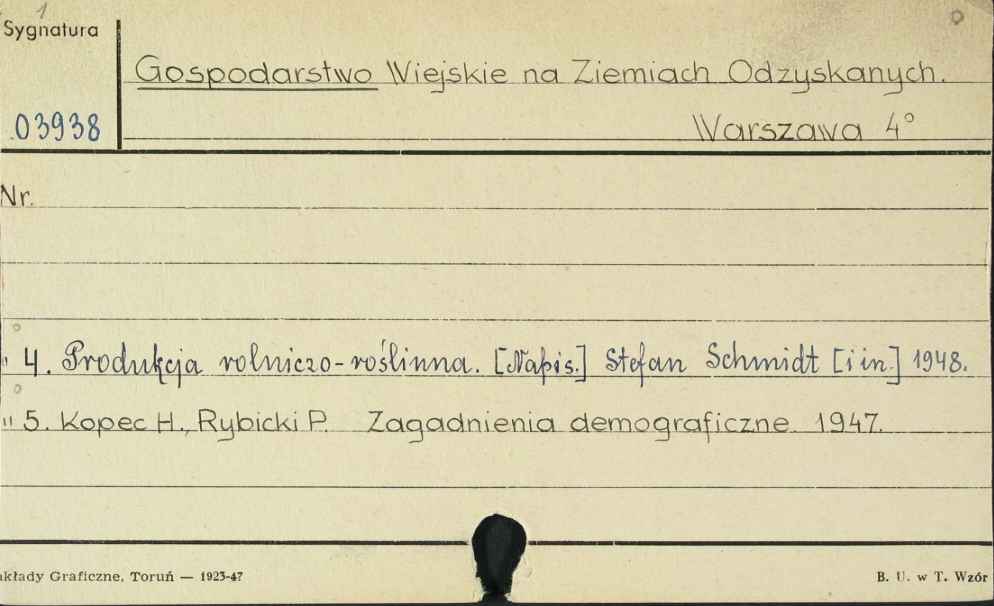 1
Sygnatura
Gospodarstwo Wiejskie na Ziemiach Odzyskanych.
03938
Warszawa 4°
Nr.
" 4. Produkcja rolniczo-roślinna. [Napis.] Stefan Schmidt [i in.] 1948.
" 5. Kopec H., Rybicki P. Zagadnienia demograficzne. 1947.
akłady Graficzne, Toruń — 1923-47
B. U. w T. Wzór